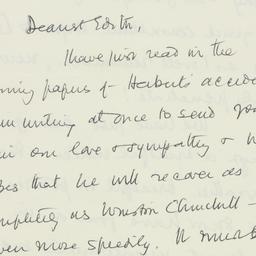 Dearest Edith,
I have just read in the
ning papers of Herbert's accide
m writing at once to send you
our love & sympathy & h
es that he will recover as
mpletely as Winston Churchill —
ven more speedily. It must b